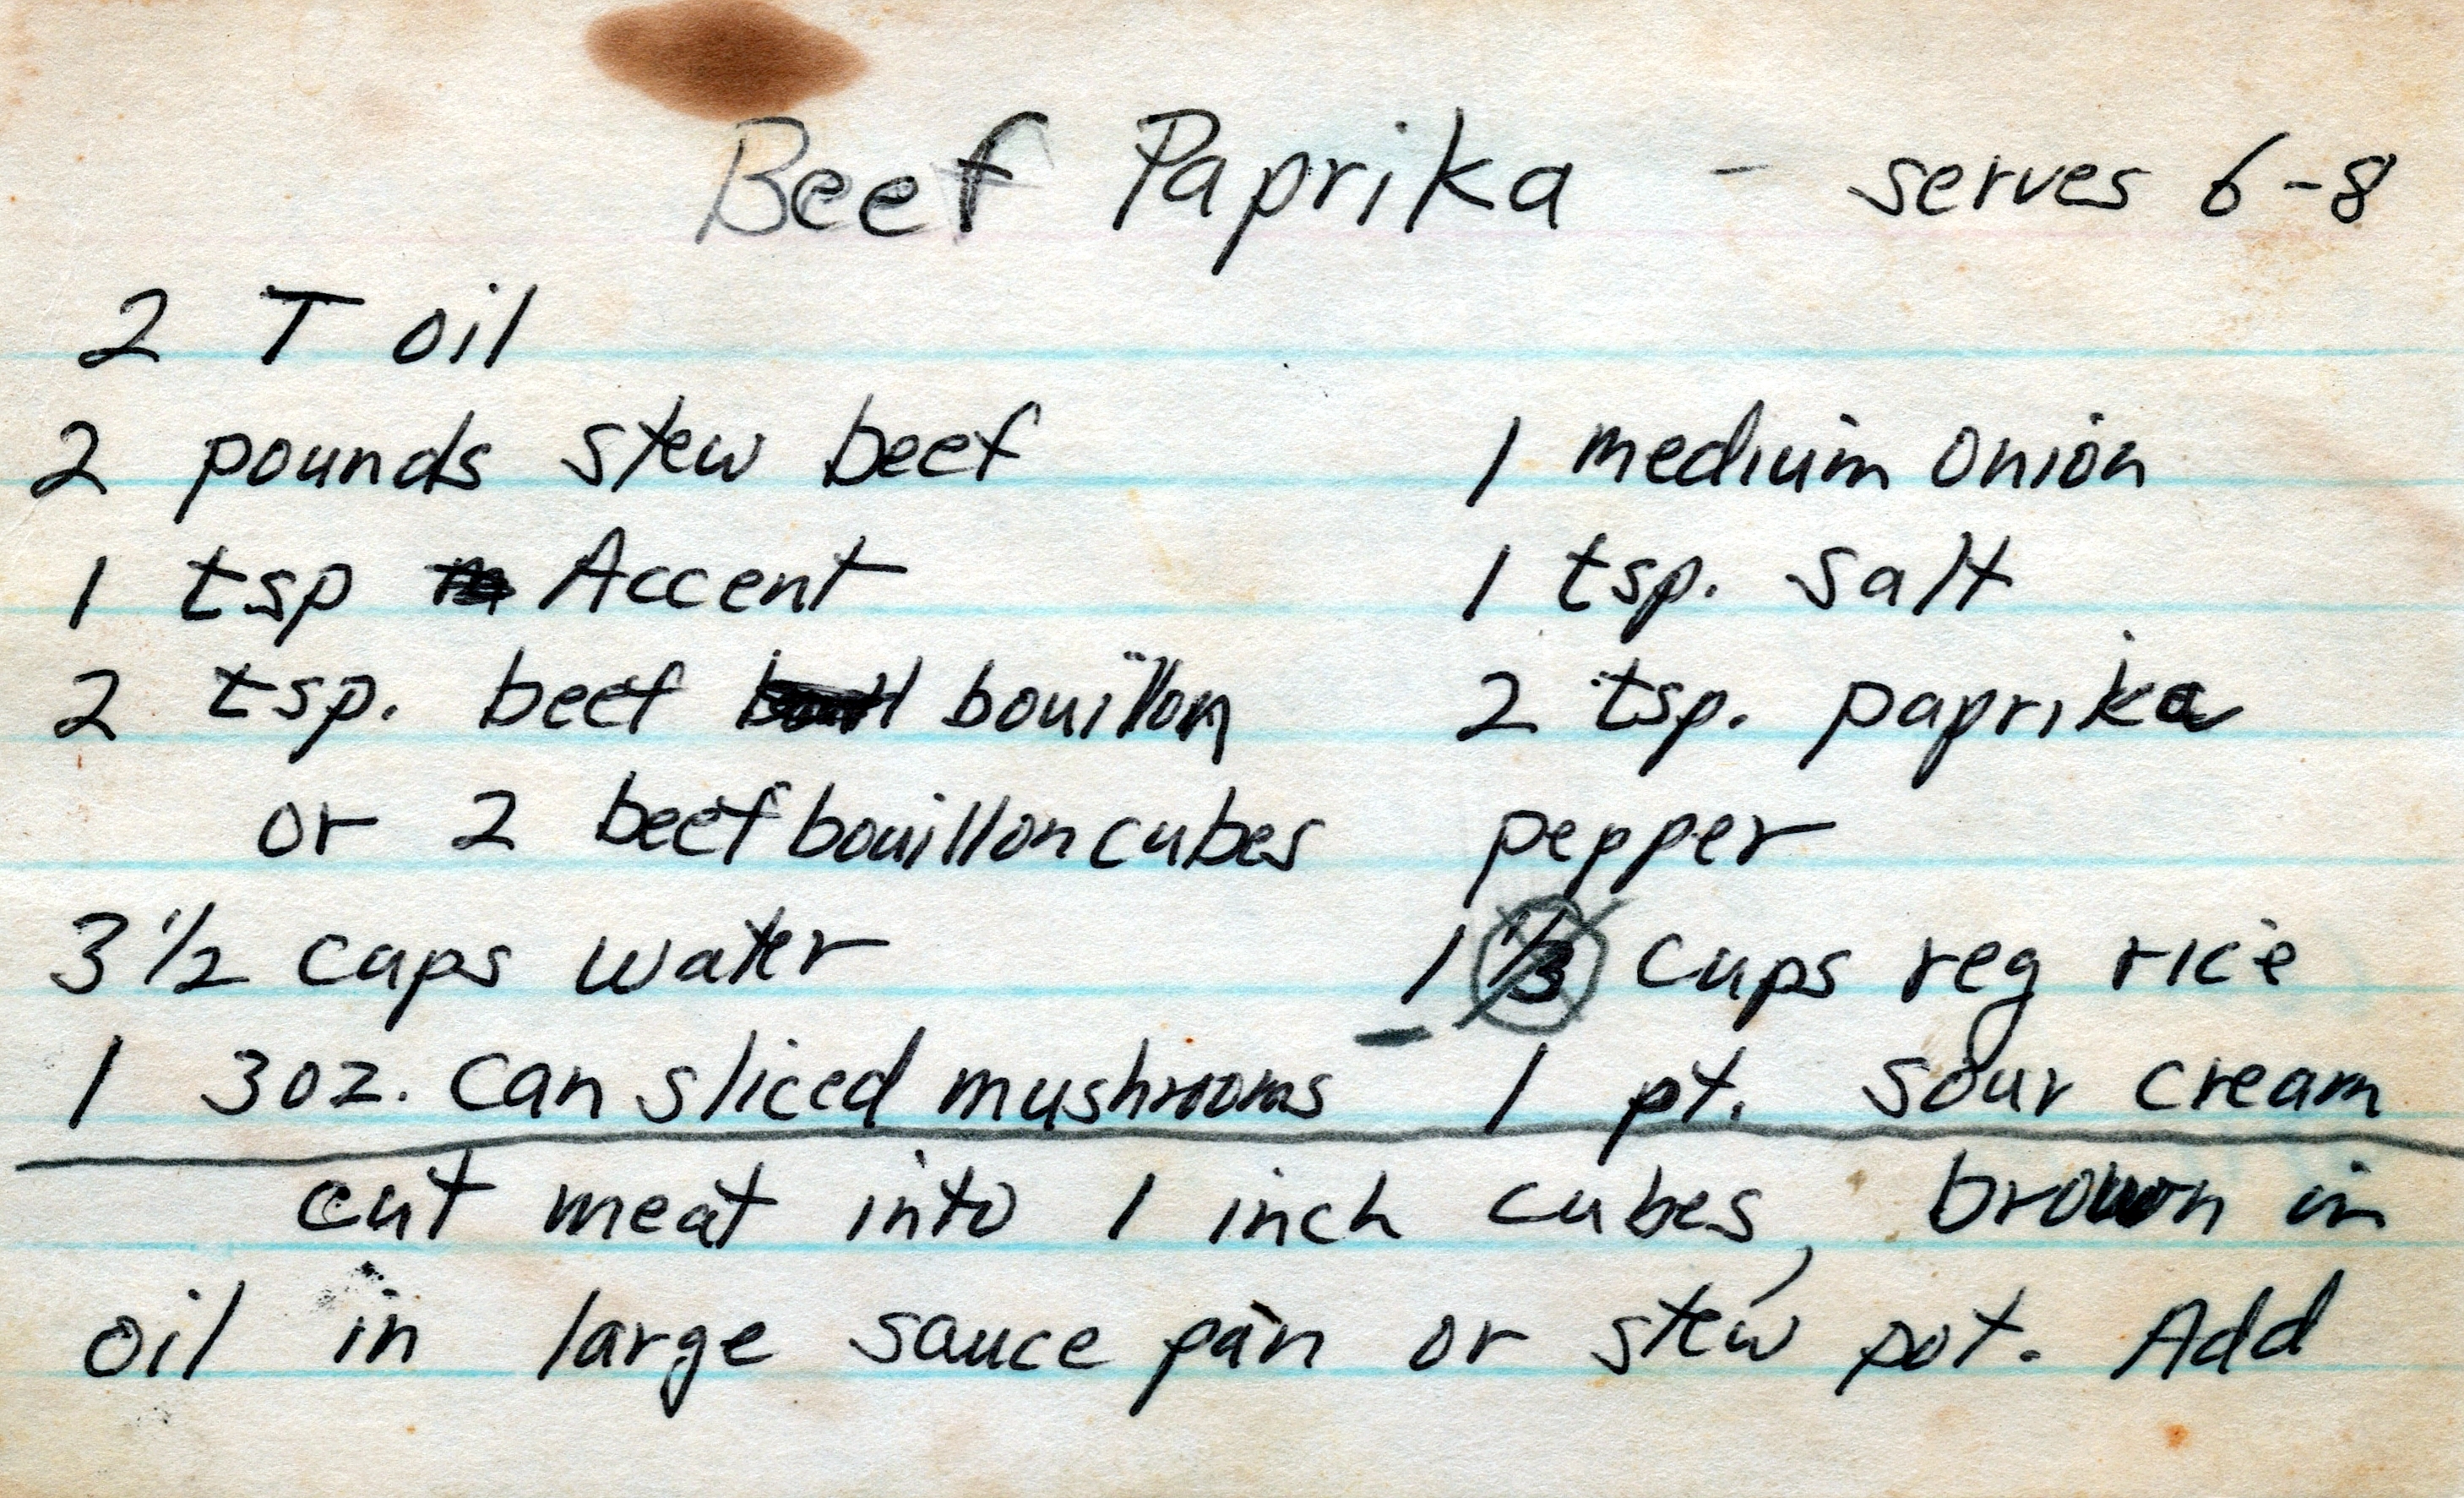 Beef Paprika - serves 6-8
2 T oil
2 pounds stew beef 1 medium onion
1 tsp Accent 1 tsp. salt
2 tsp. beef bouillon 2 tsp. paprika
or 2 beef bouillon cubes pepper
3 1/2 cups water 1 1/3 cups reg rice
1 3oz. can sliced mushrooms 1 pt. sour cream
cut meat into 1 inch cubes, brown in
oil in large sauce pan or stew pot. Add